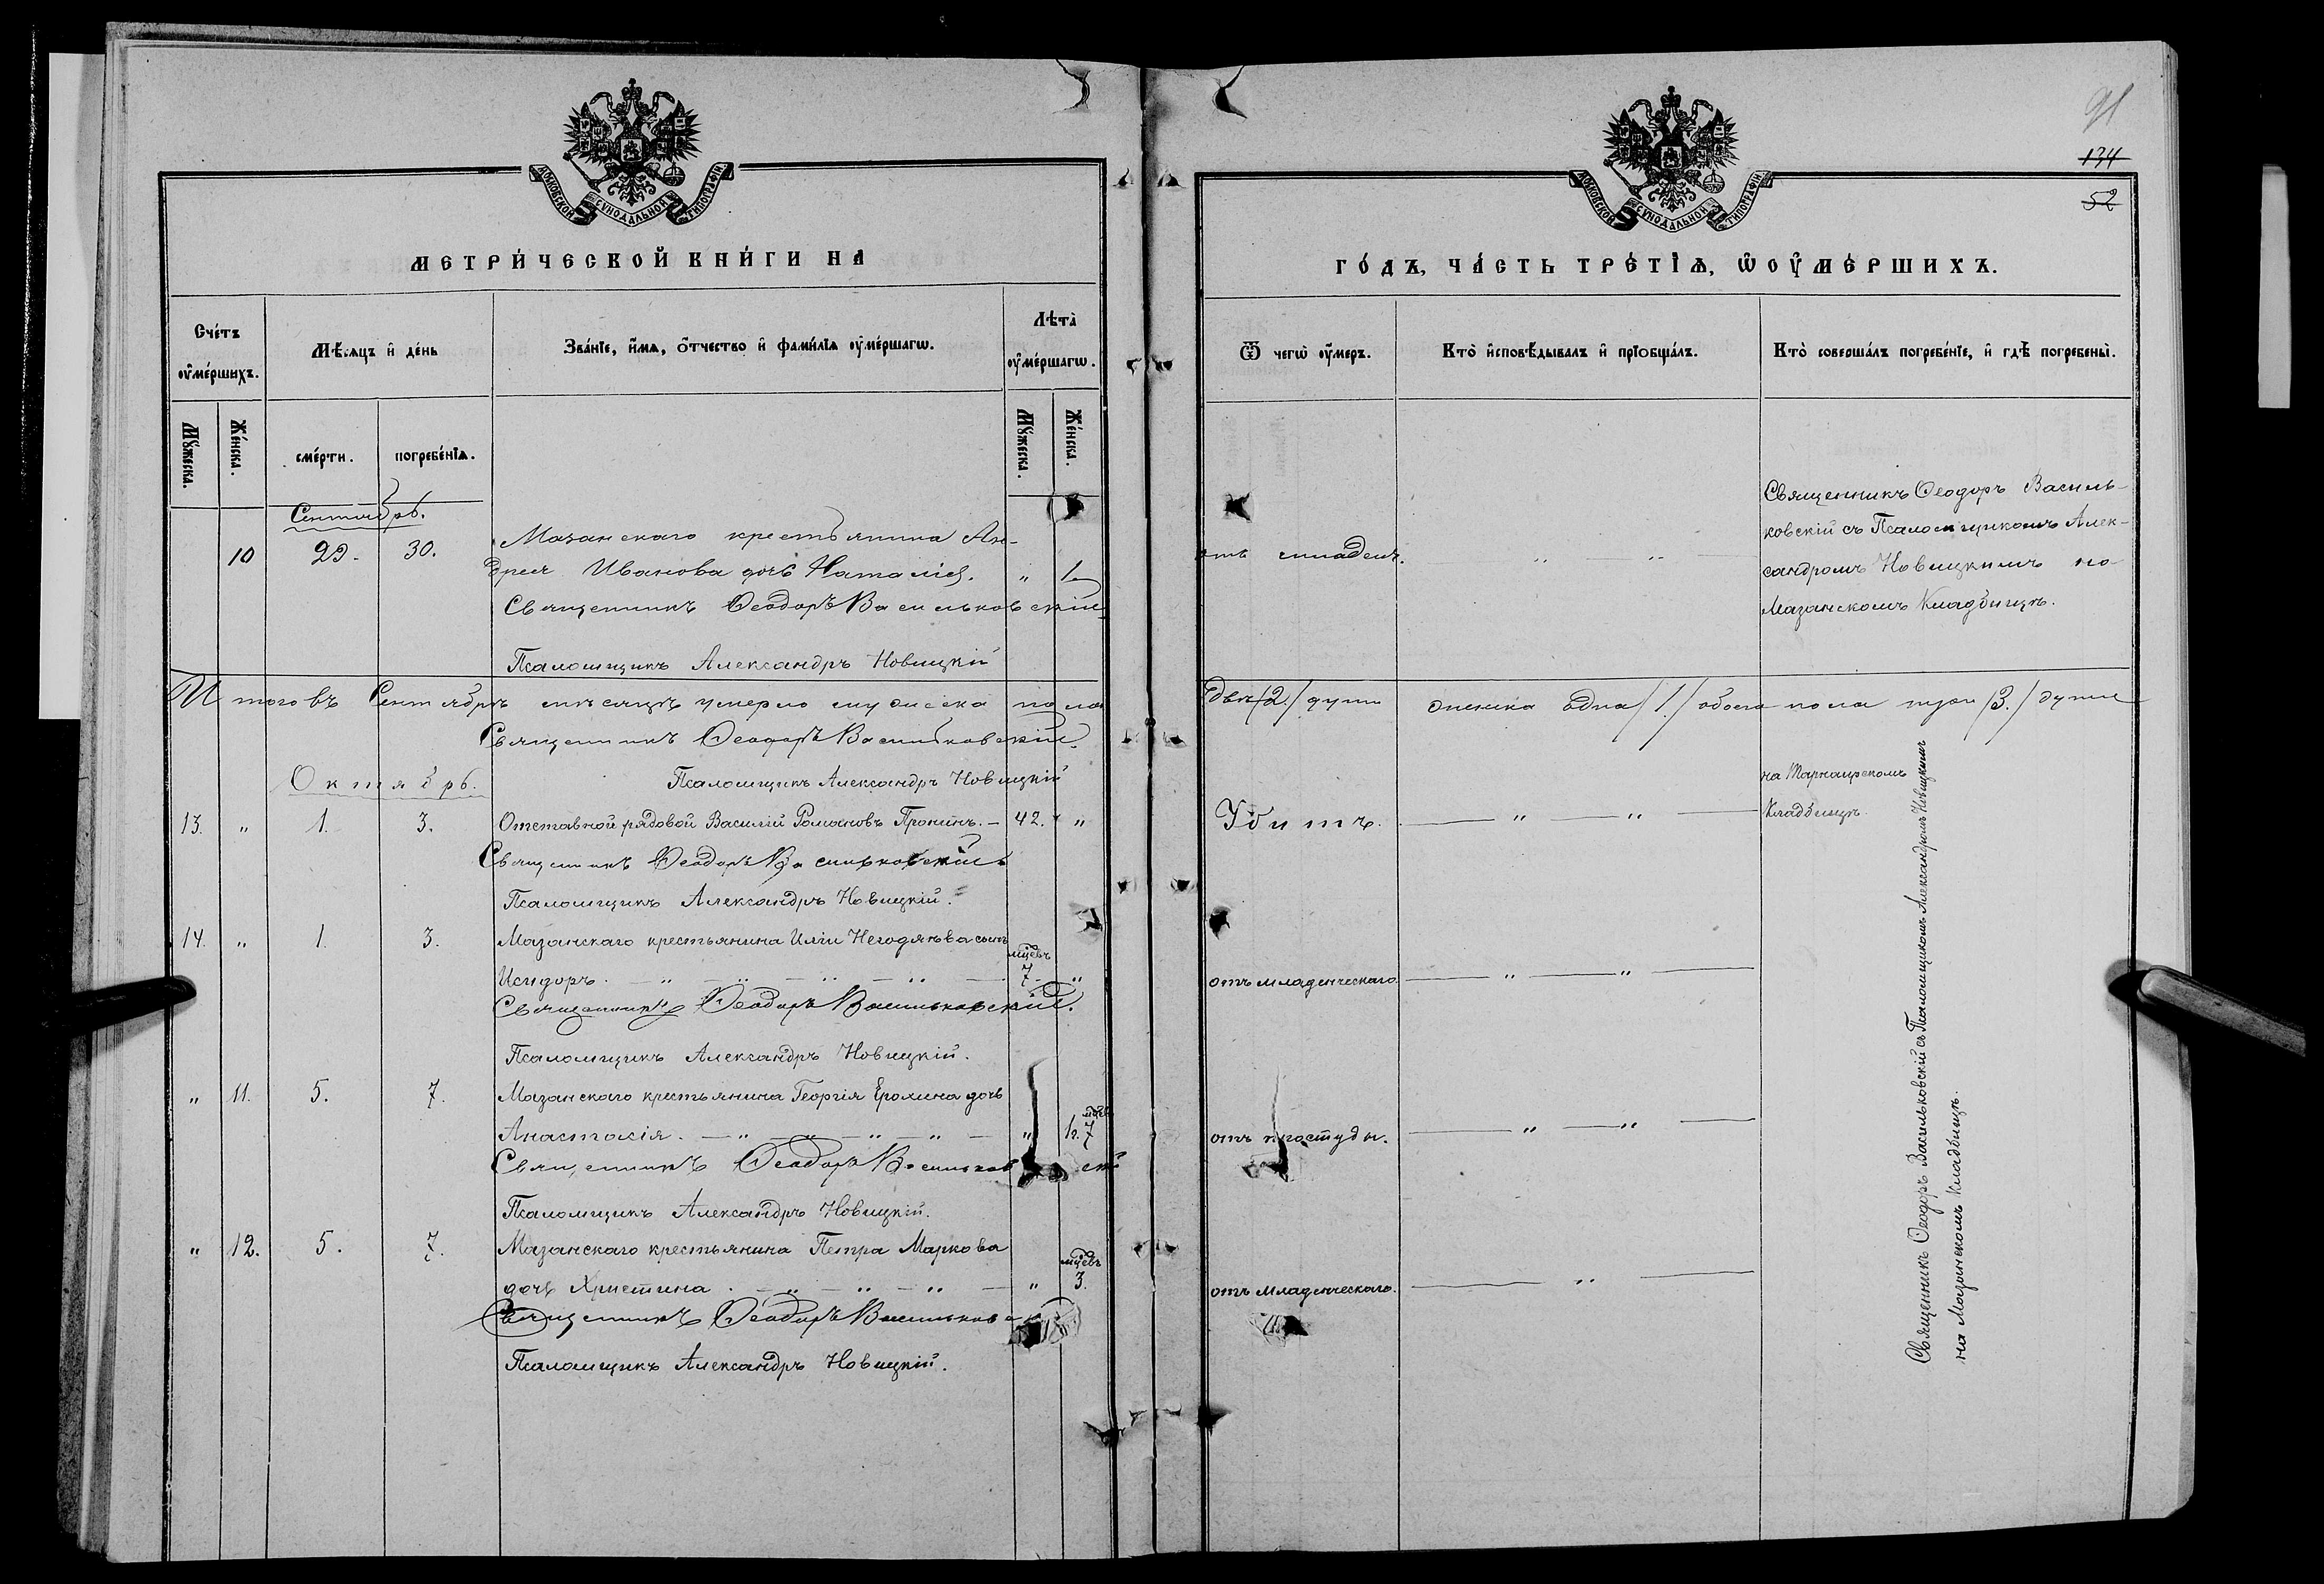 МОСКОВСКОЙ СѴНОДАЛЬНОЙ ТИПОГРАФІИ
МЕТРИ́ЧЕСКОЙ КНИ́ГИ НА
Сче́тъ ᲂу҆ме́ршихъ.
Мѣ́сяцъ и҆ де́нь
Зва́нїе, и҆́мѧ, ѻ҆́тчество и҆ фами́лїѧ ᲂу҆ме́ршагѡ.
Лѣта̀ ᲂу҆ме́ршагѡ.
Мꙋ́жеска.
Же́нска.
сме́рти.
погребе́нїѧ.
Мꙋ́жеска.
Же́нска.
Сентябрь.
10 29. 30. Мазанскаго крестьянина Ан-
дрея Иванова дочь Наталія. " 1
Священникъ Ѳеодоръ Васильковскій
Псаломщикъ Александръ Новицкій
Итого въ Сентябрѣ мѣсяцѣ умерло мужеска пола
Священникъ Ѳеодоръ Васильковскій.
Октябрь.
Псаломщикъ Александръ Новицкій
13. " 1. 3. Отставной рядовой Василій Романовъ Пронинъ. — 42. "
Священникъ Ѳеодоръ Васильковскій
Псаломщикъ Александръ Новицкій.
14. " 1. 3. Мазанскаго крестьянина Иліи Негодяева сынъ
мцевъ
Исидоръ. — " — " — " — " — 7. "
Священникъ Ѳеодоръ Васильковскій.
Псаломщикъ Александръ Новицкій.
" 11. 5. 7. Мазанскаго крестьянина Георгія Еромина дочь
Анастасія. — " — " — " — " — " 1г. 7
Священникъ Ѳеодоръ Васильковскій
Псаломщикъ Александръ Новицкій.
" 12. 5. 7. Мазанскаго крестьянина Петра Маркова
мцевъ
дочь Христина. — " — " — " — " 3.
Священникъ Ѳеодоръ Васильковск
Псаломщикъ Александръ Новицкій.
91
134
52
МОСКОВСКОЙ СѴНОДАЛЬНОЙ ТИПОГРАФІИ
ГО́ДЪ, ЧА́СТЬ ТРЕ́ТЇѦ, Ѡ҆ ОУ҆МЕ́РШИХЪ.
Ѿ чегѡ̀ ᲂу҆́меръ.
Кто̀ и҆сповѣ́дывалъ и҆ прїобща́лъ.
Кто̀ соверша́лъ погребе́нїе, и҆ гдѣ̀ погребены̀.
Священникъ Ѳеодоръ Василь-
ковскій съ Псаломщикомъ Алек-
отъ младен. — " — " — сандромъ Новицкимъ на
Мазанскомъ Кладбищѣ.
двѣ /2./ души женска одна /1./ обоего пола три /3./ души
на Тарнаирскомъ
Убитъ. — " — " — Кладбищѣ.
отъ младенческаго. — " — " —
отъ простуды. — " — " —
отъ младенческаго. — " —
Священникъ Ѳеодоръ Васильковскій съ Псаломщикомъ Александромъ Новицкимъ
на Мазанскомъ Кладбищѣ.